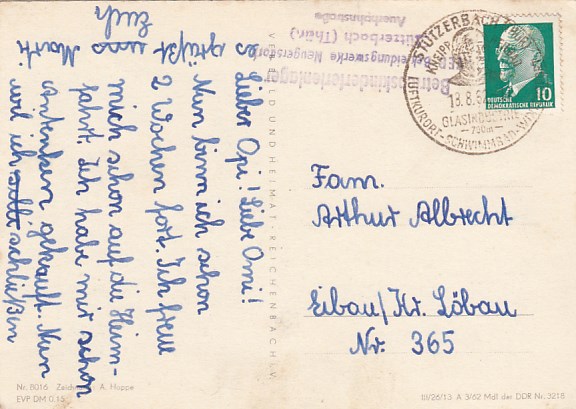 Lieber Opi! Liebe Omi!
Nun binn ich schon
2 Wochen fort. Ich freue
mich schon auf die Heim-
fahrt. Ich habe mir schon
gekauft. Nun
will ich schließen
es grüßt uns Marti
Euch
Betriebskinderferienlager
VEB Bekleidungswerke Neugersdorf
Stützerbach (Thür.)
Auerhahnstraße
VERLAG BILD UND HEIMAT · REICHENBACH I. V.
STÜTZERBACH
KNEIPP
13.8.6
GLASINDUSTRIE
— 730m —
LUFTKURORT-SCHWIMMBAD-WIN
DEUTSCHE
DEMOKRATISCHE REPUBLIK
10
Fam.
Arthur Albrecht
Eibau/Kr. Löbau
Nr. 365
Nr. 8016 Zeichnung: A. Hoppe
EVP DM 0.15
III/26/13 A 3/62 MdI der DDR Nr. 3218